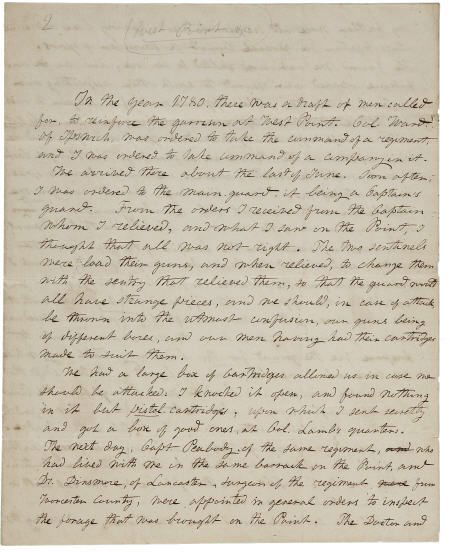 2
West Point
In the year 1780, there was a draft of men called
for, to reinforce the garrison at West Point. Col. Ward,
of Ipswich, was ordered to take the command of a regiment,
and I was ordered to take command of a company in it.
We arrived there about the last of June. Soon after,
I was ordered to the main guard, it being a Captain's
guard. From the orders I received from the Captain
whom I relieved, and what I saw on the Point, I
thought that all was not right. The two sentinels
were load their guns, and when relieved, to change them
with the sentry that relieved them, so that the guard would
all have strange pieces, and we should, in case of attack
be thrown into the utmost confusion, our guns being
of different bores, and our men having had their cartridges
made to suit them.
We had a large box of cartridges allowed us in case we
should be attacked. I knocked it open, and found nothing
in it but pistol cartridges, upon which I sent secretly
and got a box of good ones, at Col. Lamb's quarters.
The next day, Capt. Peabody, of the same regiment, who
had lived with me in the same barrack on the Point, and
Dr. Dinsmore, of Lancaster, surgeon of the regiment from
Worcester County, were appointed in general orders to inspect
the forage that was brought on the Point. The Doctor and